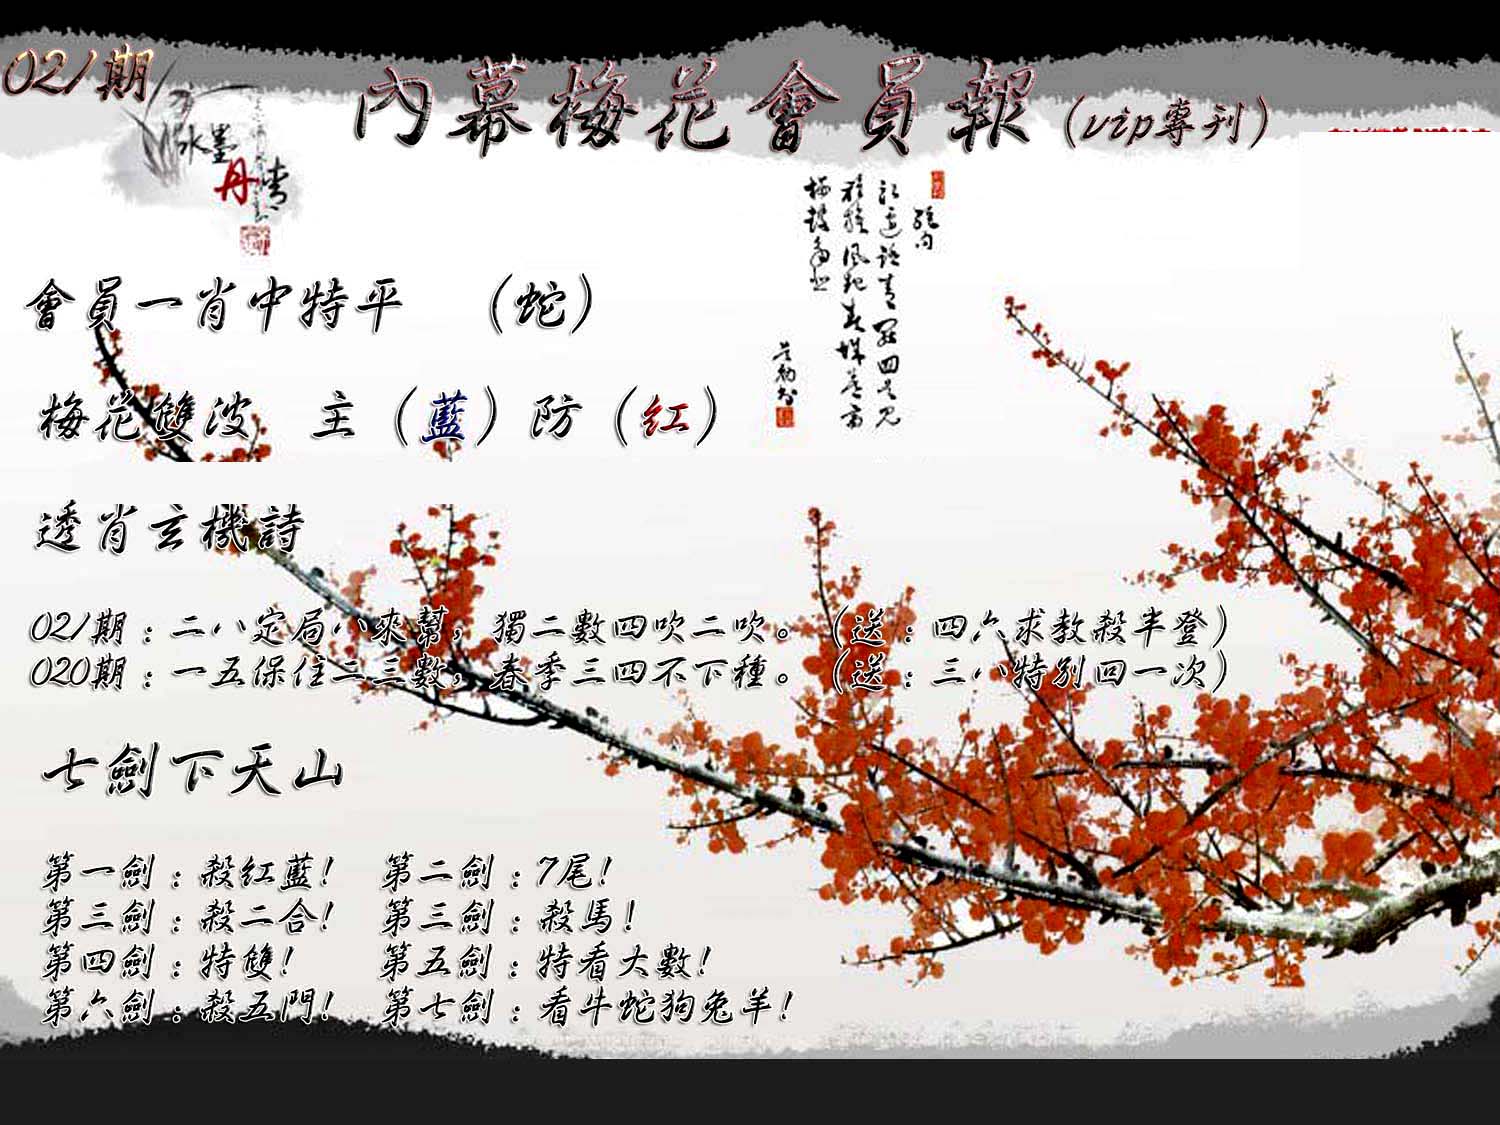 021期
內幕梅花會員報(vip專刊)
水墨
丹青
會員一肖中特平 (蛇)
梅花雙波 主(藍)防(紅)
透肖玄機詩
021期:二八定局八來幫,獨二數四吹二吹。(送:四六求教殺半登)
020期:一五保住二三數,春季三四不下種。(送:三八特別回一次)
七劍下天山
第一劍:殺紅藍! 第二劍:7尾!
第三劍:殺二合! 第三劍:殺馬!
第四劍:特雙! 第五劍:特看大數!
第六劍:殺五門! 第七劍:看牛蛇狗兔羊!